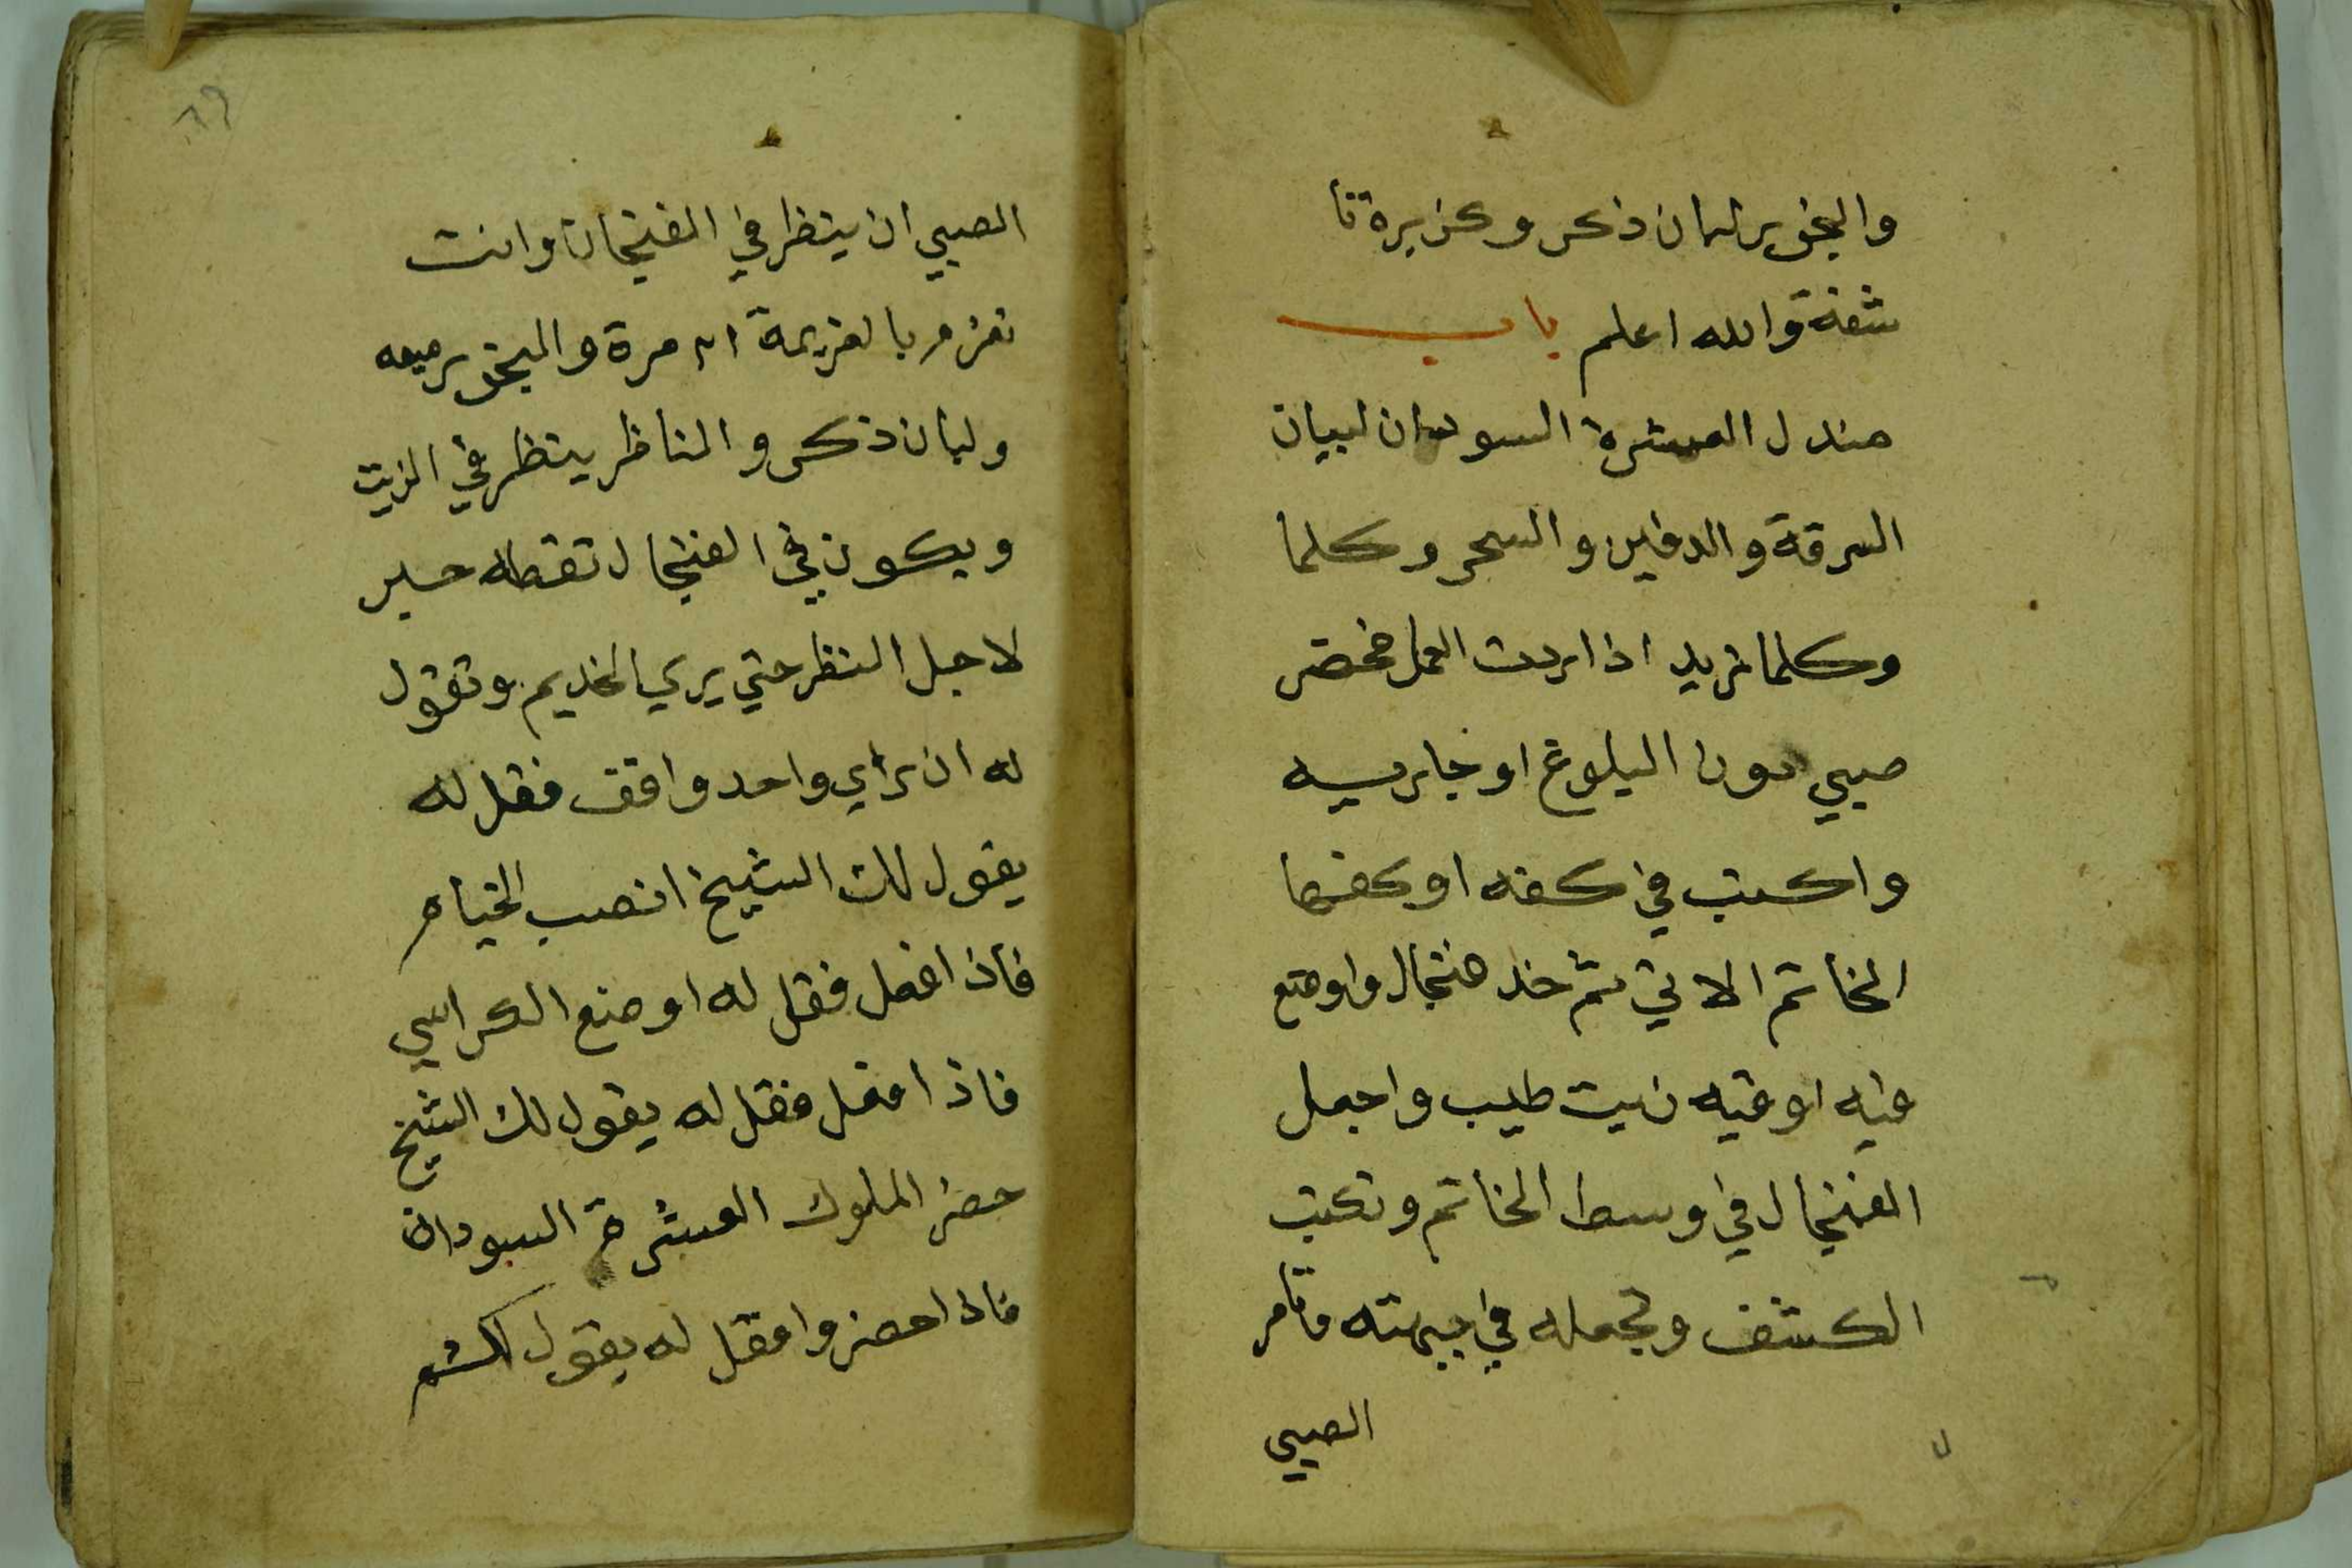 والبخور لبان ذكر وكزبرة نا
شفة والله اعلم باب
مندل العشرة السودان لبيان
السرقة والدفين والسحر وكلما
وكلما تريد اذا اردت العمل فحضر
صبي دون البلوغ او جاريه
واكتب في كفه او كفها
الخاتم الاتي ثم خد فنجال واوضع
فيه اوقيه زيت طيب واجعل
الفنجال في وسط الخاتم وتكتب
الكشف وتجعله في جبهته وتامر
الصبي
٨٩
الصبي ان ينظر في الفنجان وانت
تعزم بالعزيمة ٢١ مرة والبخور ميعه
ولبان ذكر والناظر ينظر في الزيت
ويكون في الفنجال نقطه حبر
لاجل النظر حتي يري الخديم وتقول
له ان راي واحد واقف فقل له
يقول لك الشيخ انصب الخيام
فاذا فعل فقل له اوضع الكراسي
فاذا فعل فقل له يقول لك الشيخ
حضر الملوك العشرة السودان
فاذا حضروا فقل له يقول لك